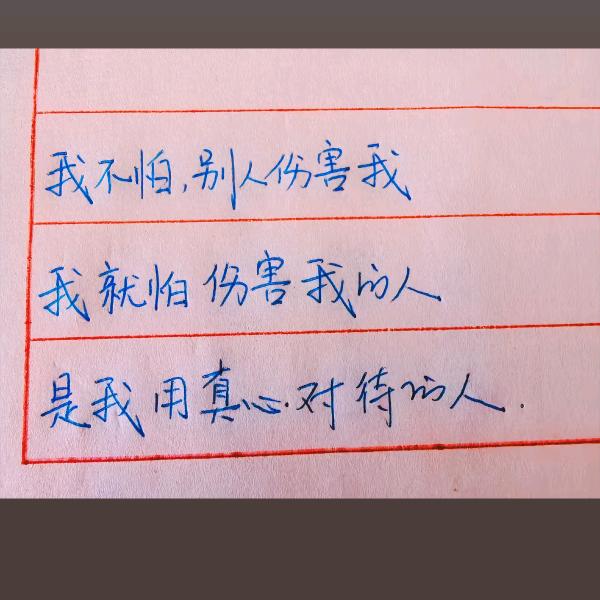 我不怕,别人伤害我
我就怕伤害我的人
是我用真心.对待的人.